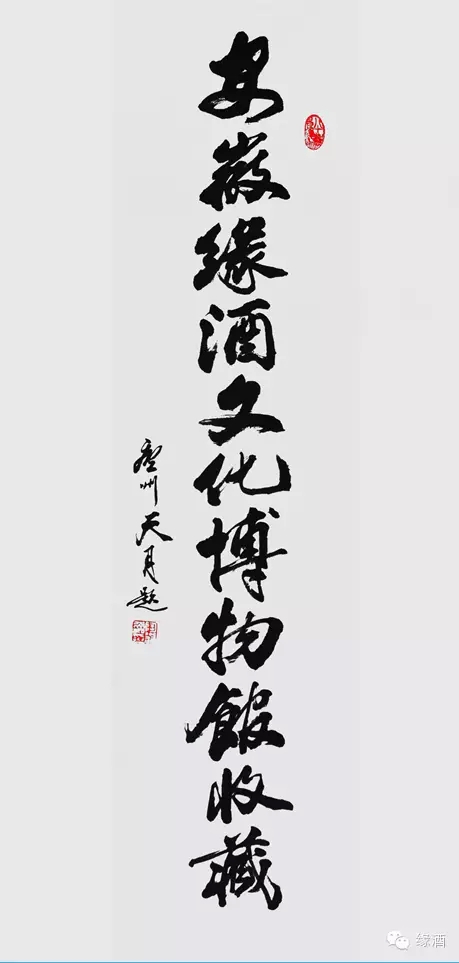 安徽缘酒文化博物館收藏
州天月题
缘酒